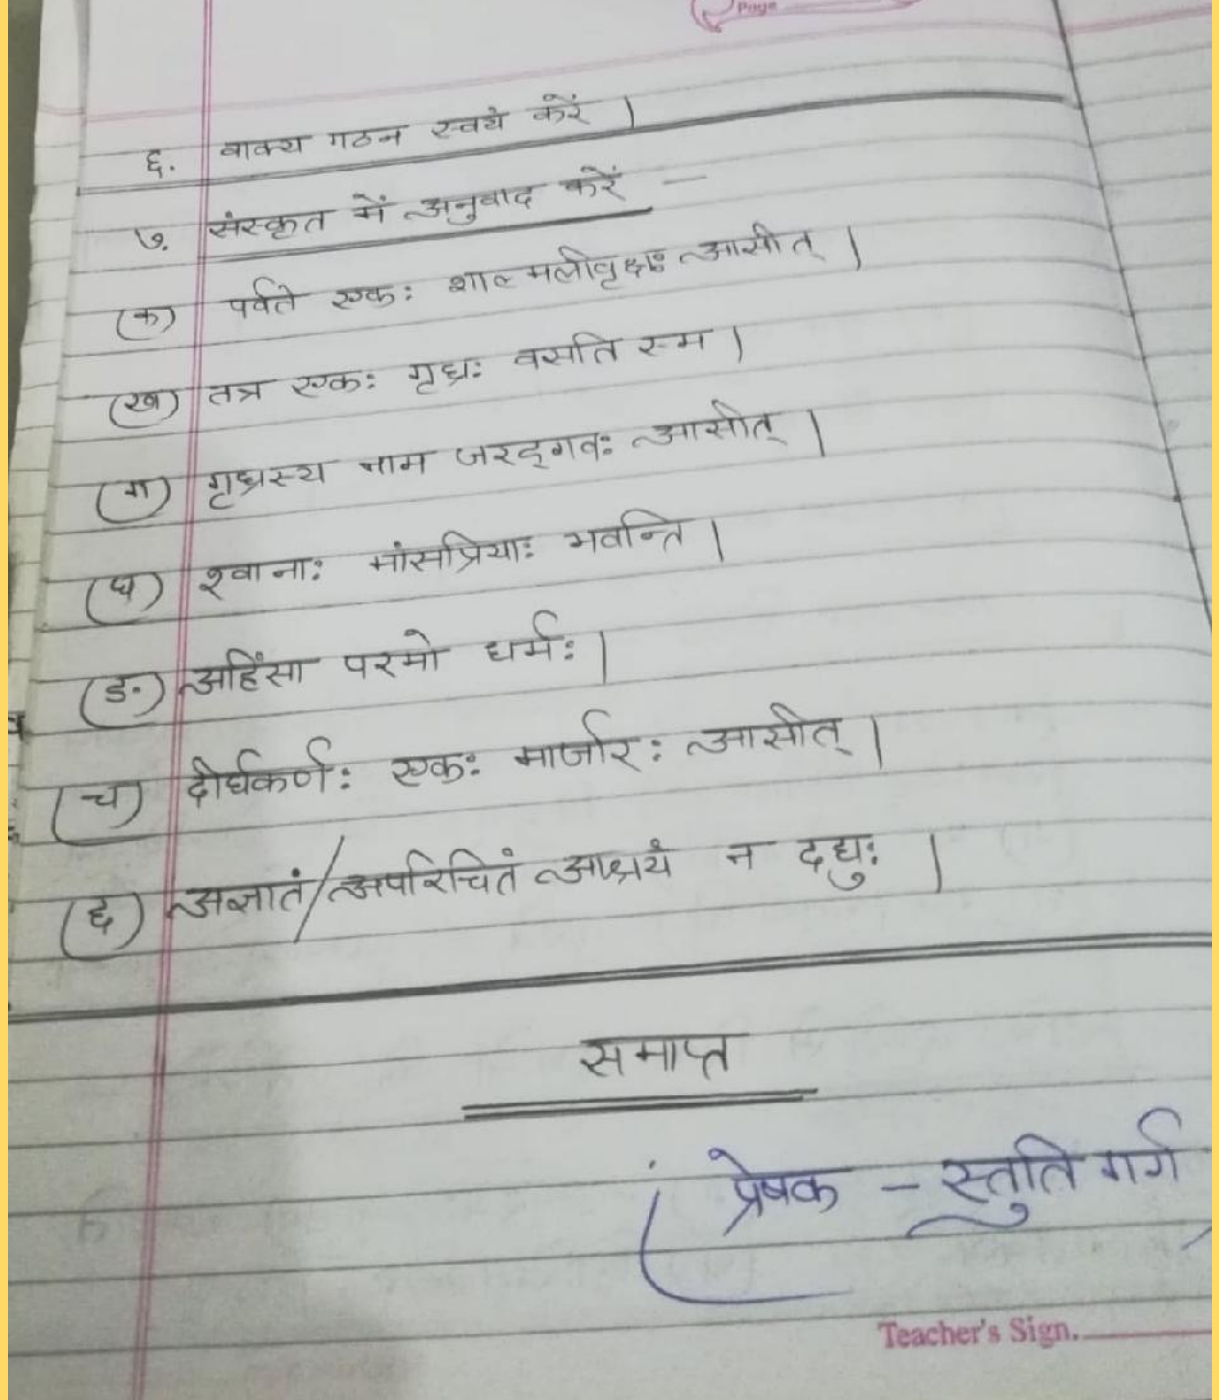 Page
६. वाक्य गठन स्वयं करें ।
७. संस्कृत में अनुवाद करें —
(क) पर्वते एकः शाल्मलीवृक्षः आसीत् ।
(ख) तत्र एकः गृध्रः वसति स्म ।
(ग) गृध्रस्य नाम जरद्गवः आसीत् ।
(घ) श्वानाः मांसप्रियाः भवन्ति ।
(ङ) अहिंसा परमो धर्मः ।
(च) दीर्घकर्णः एकः मार्जारः आसीत् ।
(छ) अज्ञातं/अपरिचितं आश्रयं न दद्युः ।
समाप्त
प्रेषक - स्तुति गर्ग
Teacher's Sign.